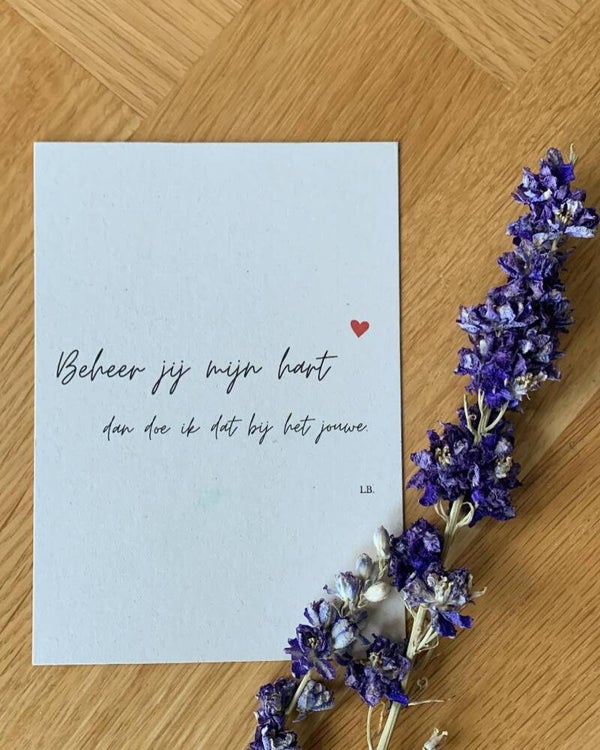 Beheer jij mijn hart
dan doe ik dat bij het jouwe.
L.B.